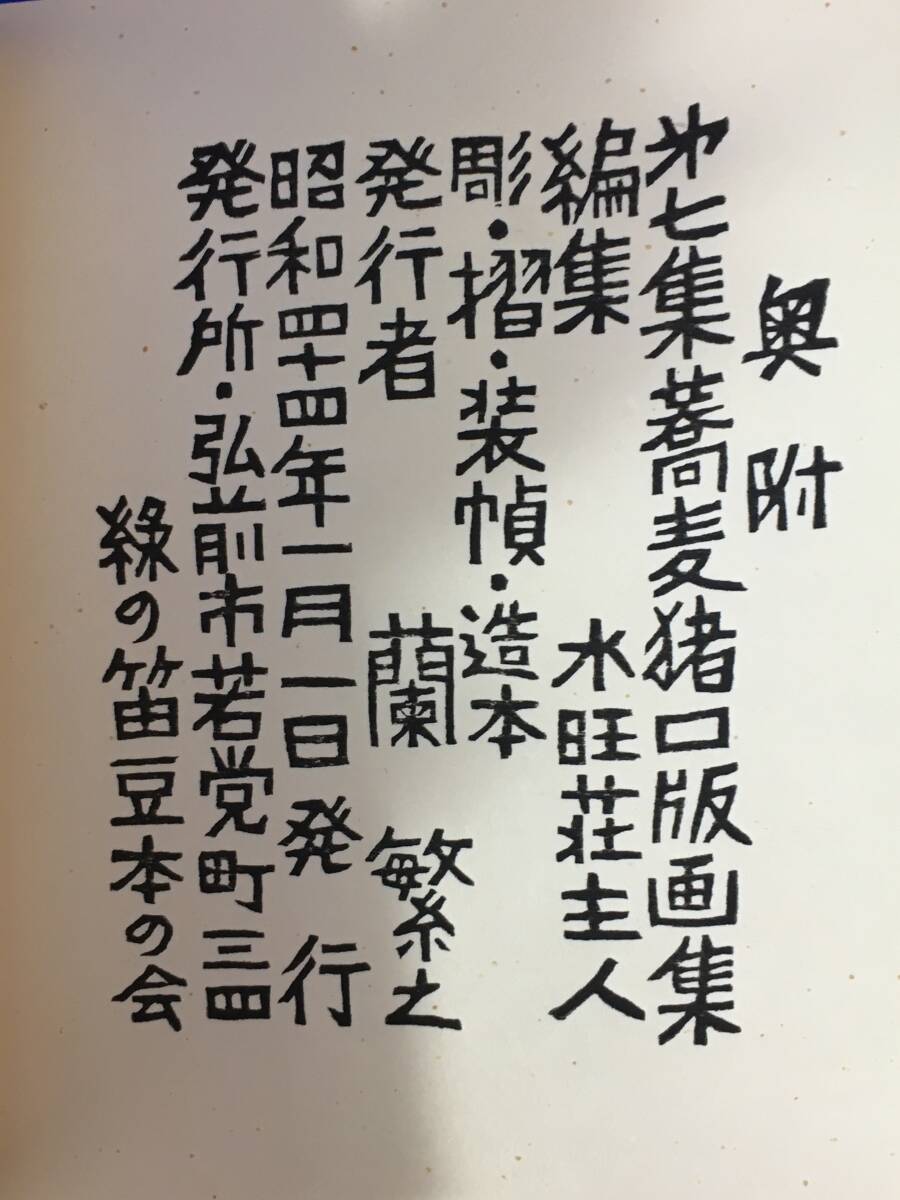 奥附
第七集蕎麦猪口版画集
編集 水旺荘主人
彫・摺・装幀・造本
発行者 蘭繁之
昭和四十四年一月一日発行
発行所・弘前市若党町三四
緑の笛豆本の会